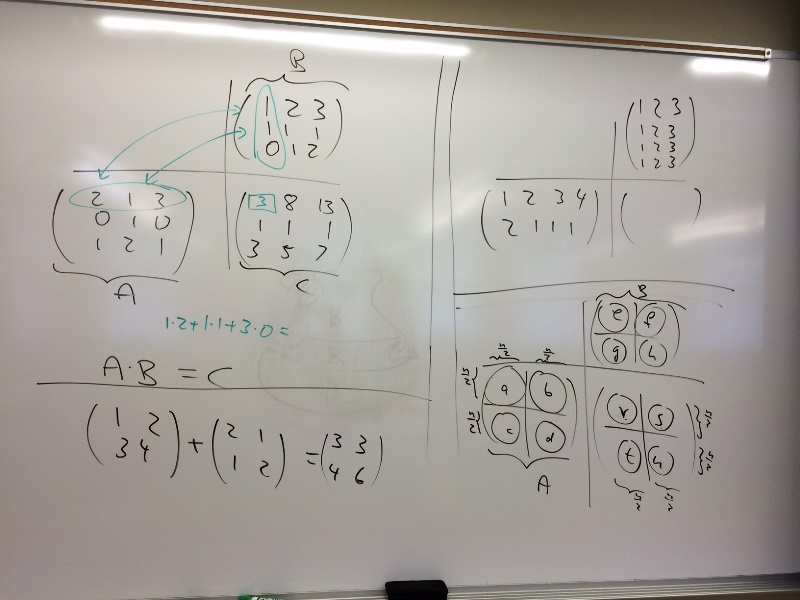 B
1 2 3
1 1 1
0 1 2
2 1 3
0 1 0
1 2 1
A
3 8 13
1 1 1
3 5 7
C
1·2+1·1+3·0=
A·B = C
( 1 2 3 4 ) + ( 2 1 1 2 ) = ( 3 3 4 6 )
1 2 3
1 2 3
1 2 3
1 2 3
1 2 3 4
2 1 1 1
B
e f
g h
n/2 n/2
n/2 a b
n/2 c d
A
r s n/2
t u n/2
n/2 n/2